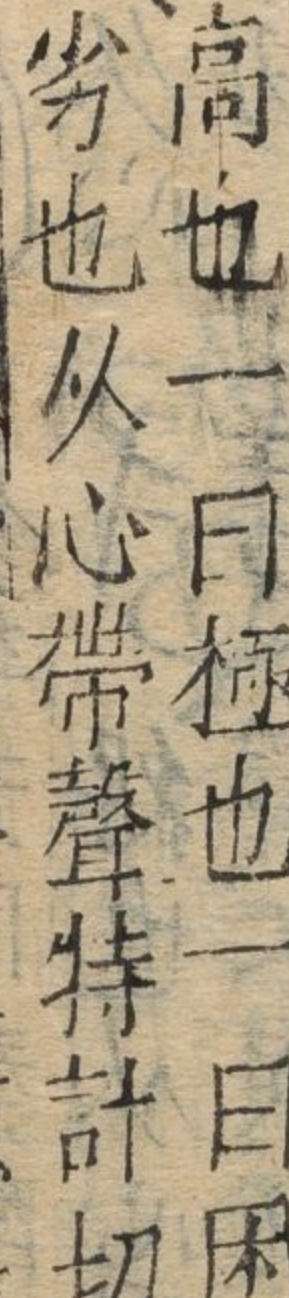 高也一曰極也一曰困
劣也从心帶聲特計切